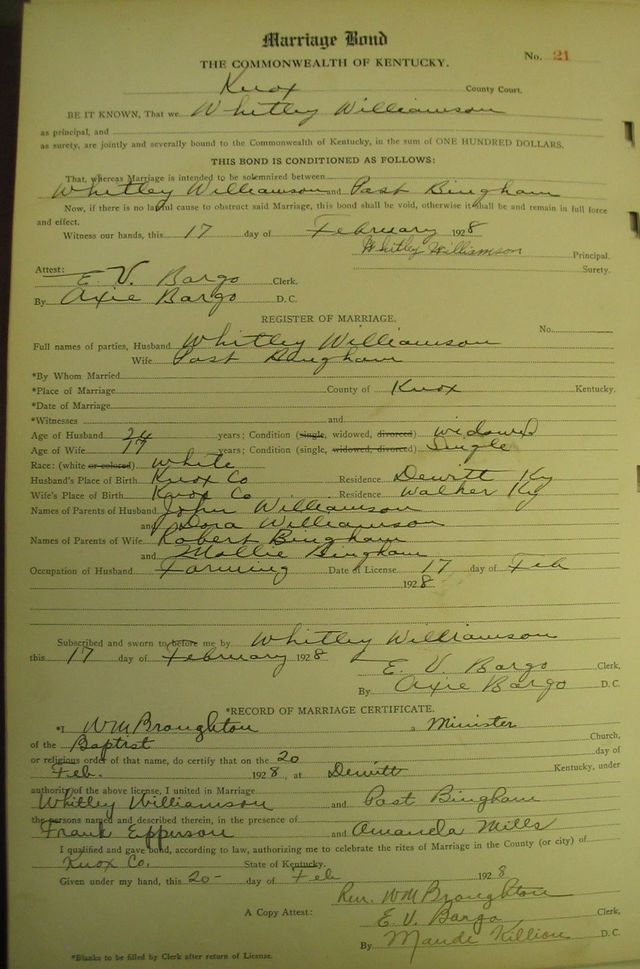 Marriage Bond
THE COMMONWEALTH OF KENTUCKY.
No. 21
Knox County Court.
BE IT KNOWN, That we Whitley Williamson
as principal, and
as surety, are jointly and severally bound to the Commonwealth of Kentucky, in the sum of ONE HUNDRED DOLLARS.
THIS BOND IS CONDITIONED AS FOLLOWS:
That, whereas Marriage is intended to be solemnized between
Whitley Williamson and Past Bingham
Now, if there is no lawful cause to obstruct said Marriage, this bond shall be void, otherwise it shall be and remain in full force
and effect.
Witness our hands, this 17 day of February 1928
Whitley Williamson Principal.
Surety.
Attest:
E. V. Bargo Clerk.
By Axie Bargo D. C.
REGISTER OF MARRIAGE.
No.
Full names of parties, Husband Whitley Williamson
Wife Past Bingham
*By Whom Married
*Place of Marriage County of Knox Kentucky.
*Date of Marriage
*Witnesses and
Age of Husband 24 years; Condition (single, widowed, divorced) widowed
Age of Wife 17 years; Condition (single, widowed, divorced) Single
Race: (white or colored) White
Husband's Place of Birth Knox Co Residence Dewitt Ky
Wife's Place of Birth Knox Co Residence Walker Ky
Names of Parents of Husband John Williamson
and Dora Williamson
Names of Parents of Wife Robert Bingham
and Mollie Bingham
Occupation of Husband Farming Date of License 17 day of Feb
1928.
Subscribed and sworn to before me by Whitley Williamson
this 17 day of February 1928
E. V. Bargo Clerk,
By Axie Bargo D. C.
*RECORD OF MARRIAGE CERTIFICATE.
*I WM Broughton a Minister
of the Baptist Church,
or religious order of that name, do certify that on the 20 day of
Feb. 1928, at Dewitt Kentucky, under
authority of the above license, I united in Marriage
Whitley Williamson and Past Bingham
the persons named and described therein, in the presence of
Frank Epperson and Amanda Mills
I qualified and gave bond, according to law, authorizing me to celebrate the rites of Marriage in the County (or city) of
Knox Co. State of Kentucky.
Given under my hand, this 20- day of Feb 1928
Rev. WM Broughton
A Copy Attest: E. V. Bargo Clerk,
By Maude Killion D. C.
*Blanks to be filled by Clerk after return of License.